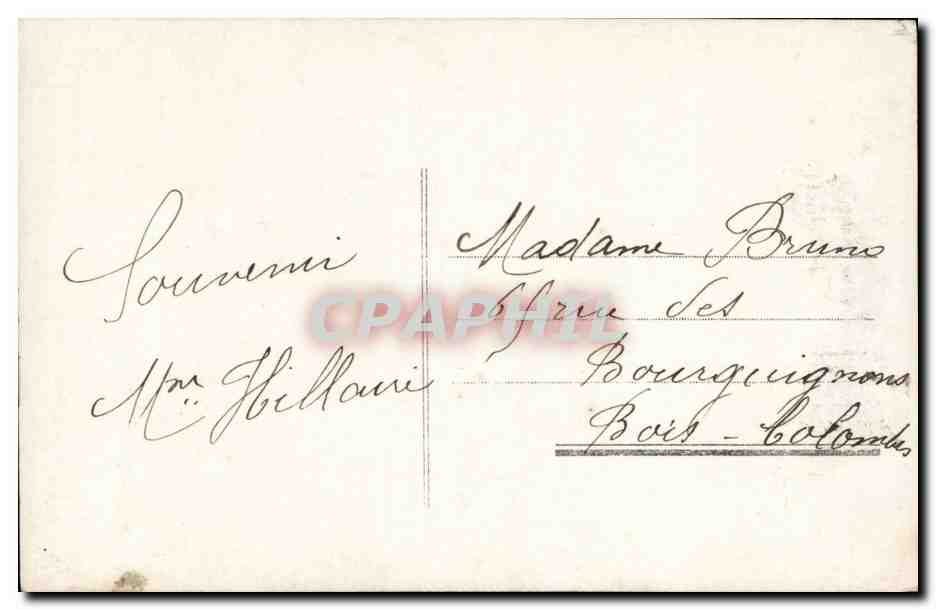 Souvenir
Mme Hillaire
Madame Bruno
rue des
Bourguignons
Bois-Colombes
CPAPHIL